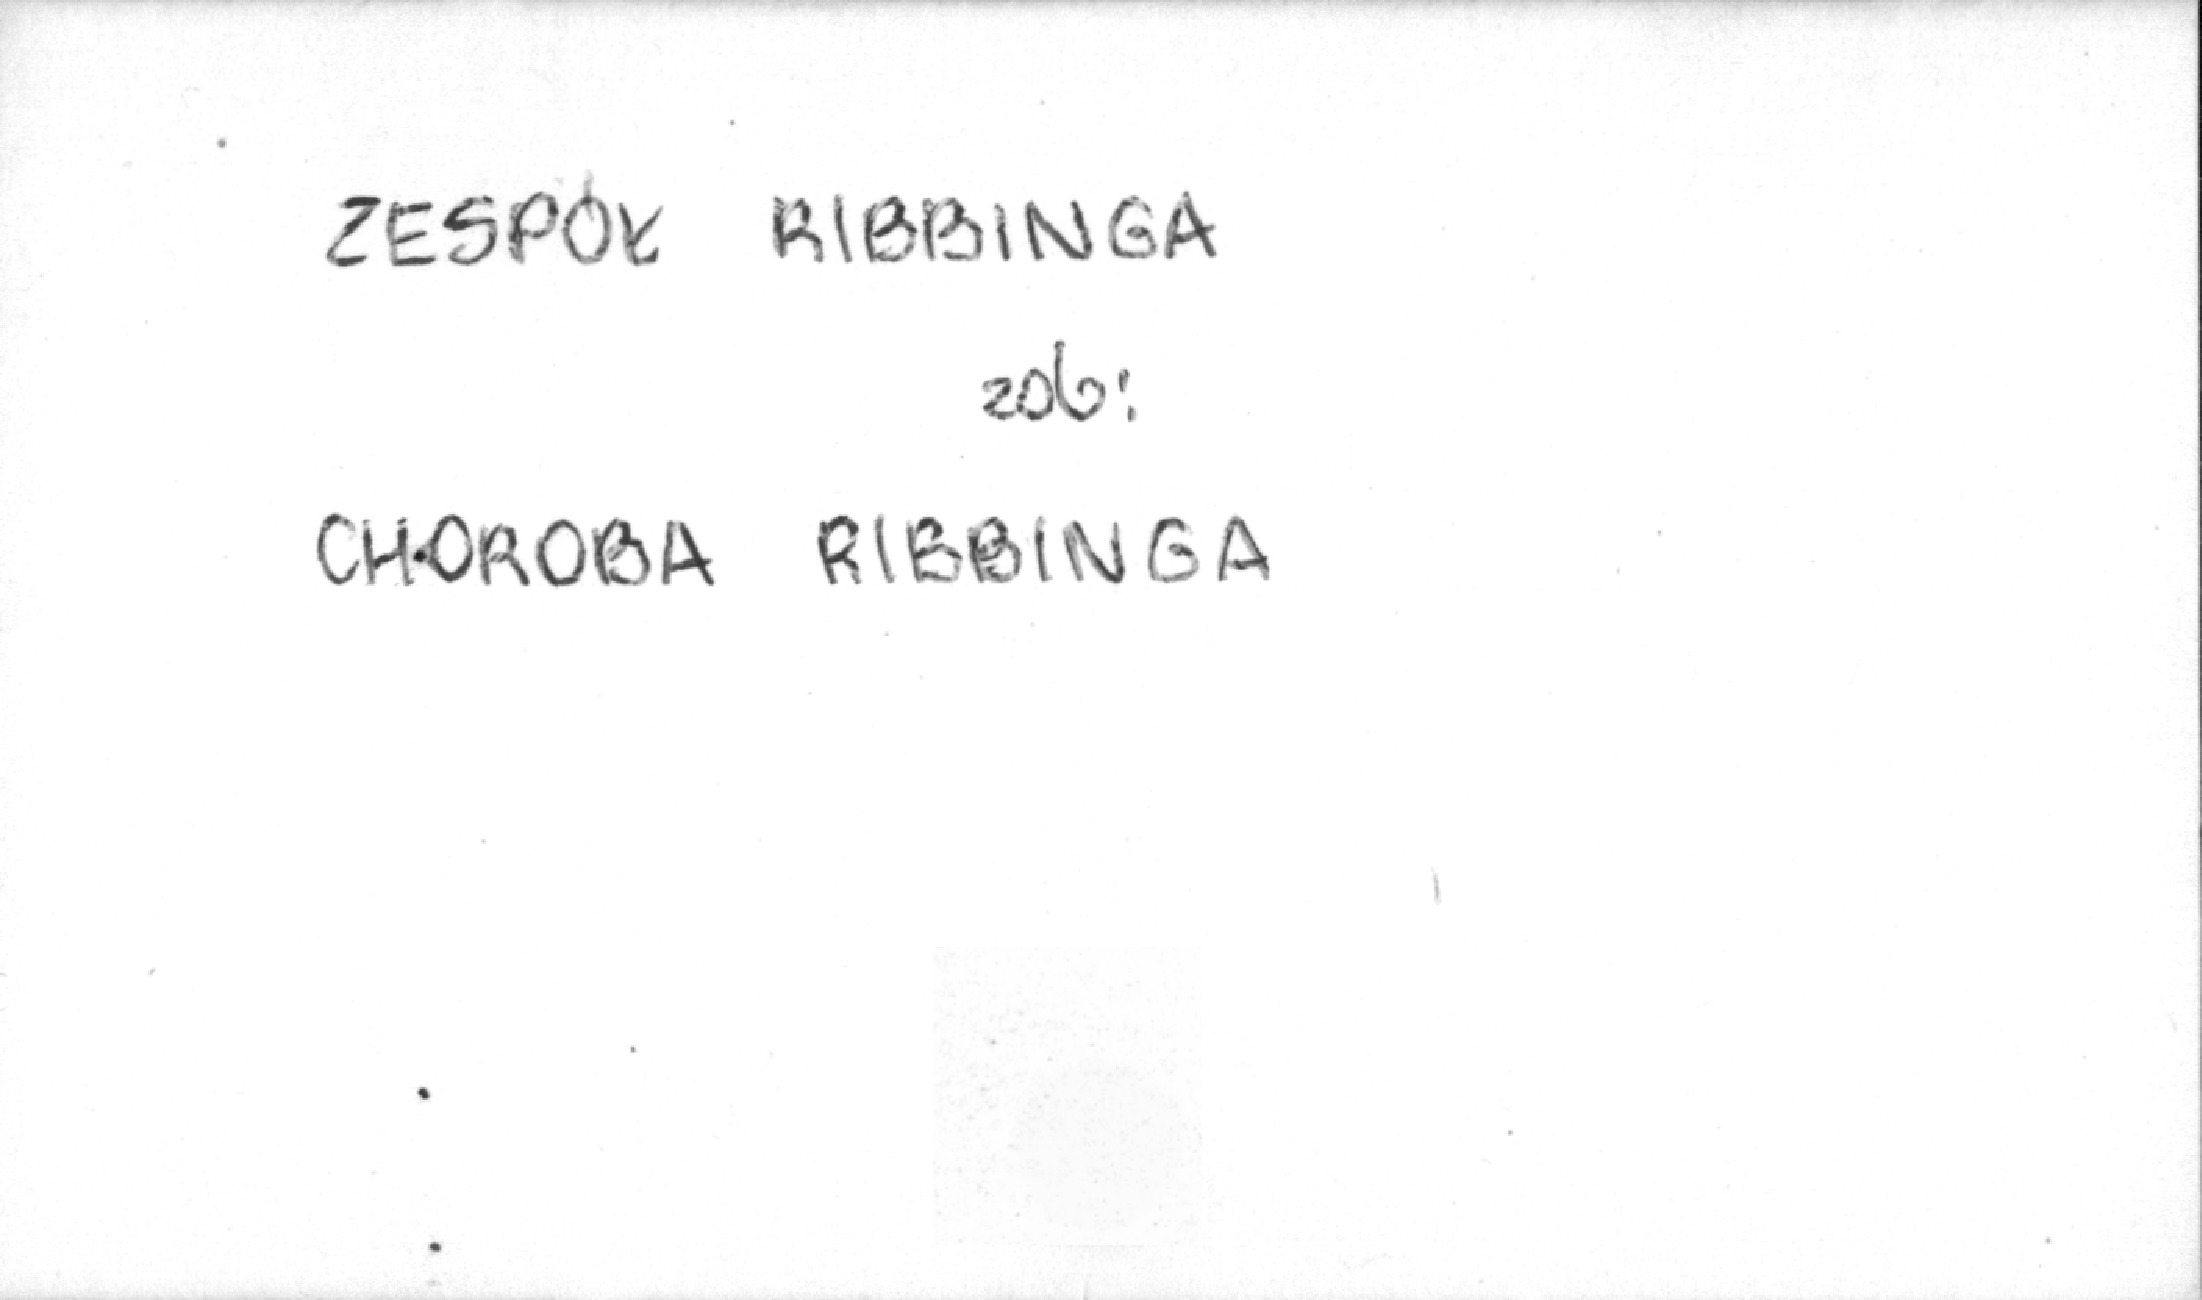 ZESPÓŁ RIBBINGA
zob:
CHOROBA RIBBINGA